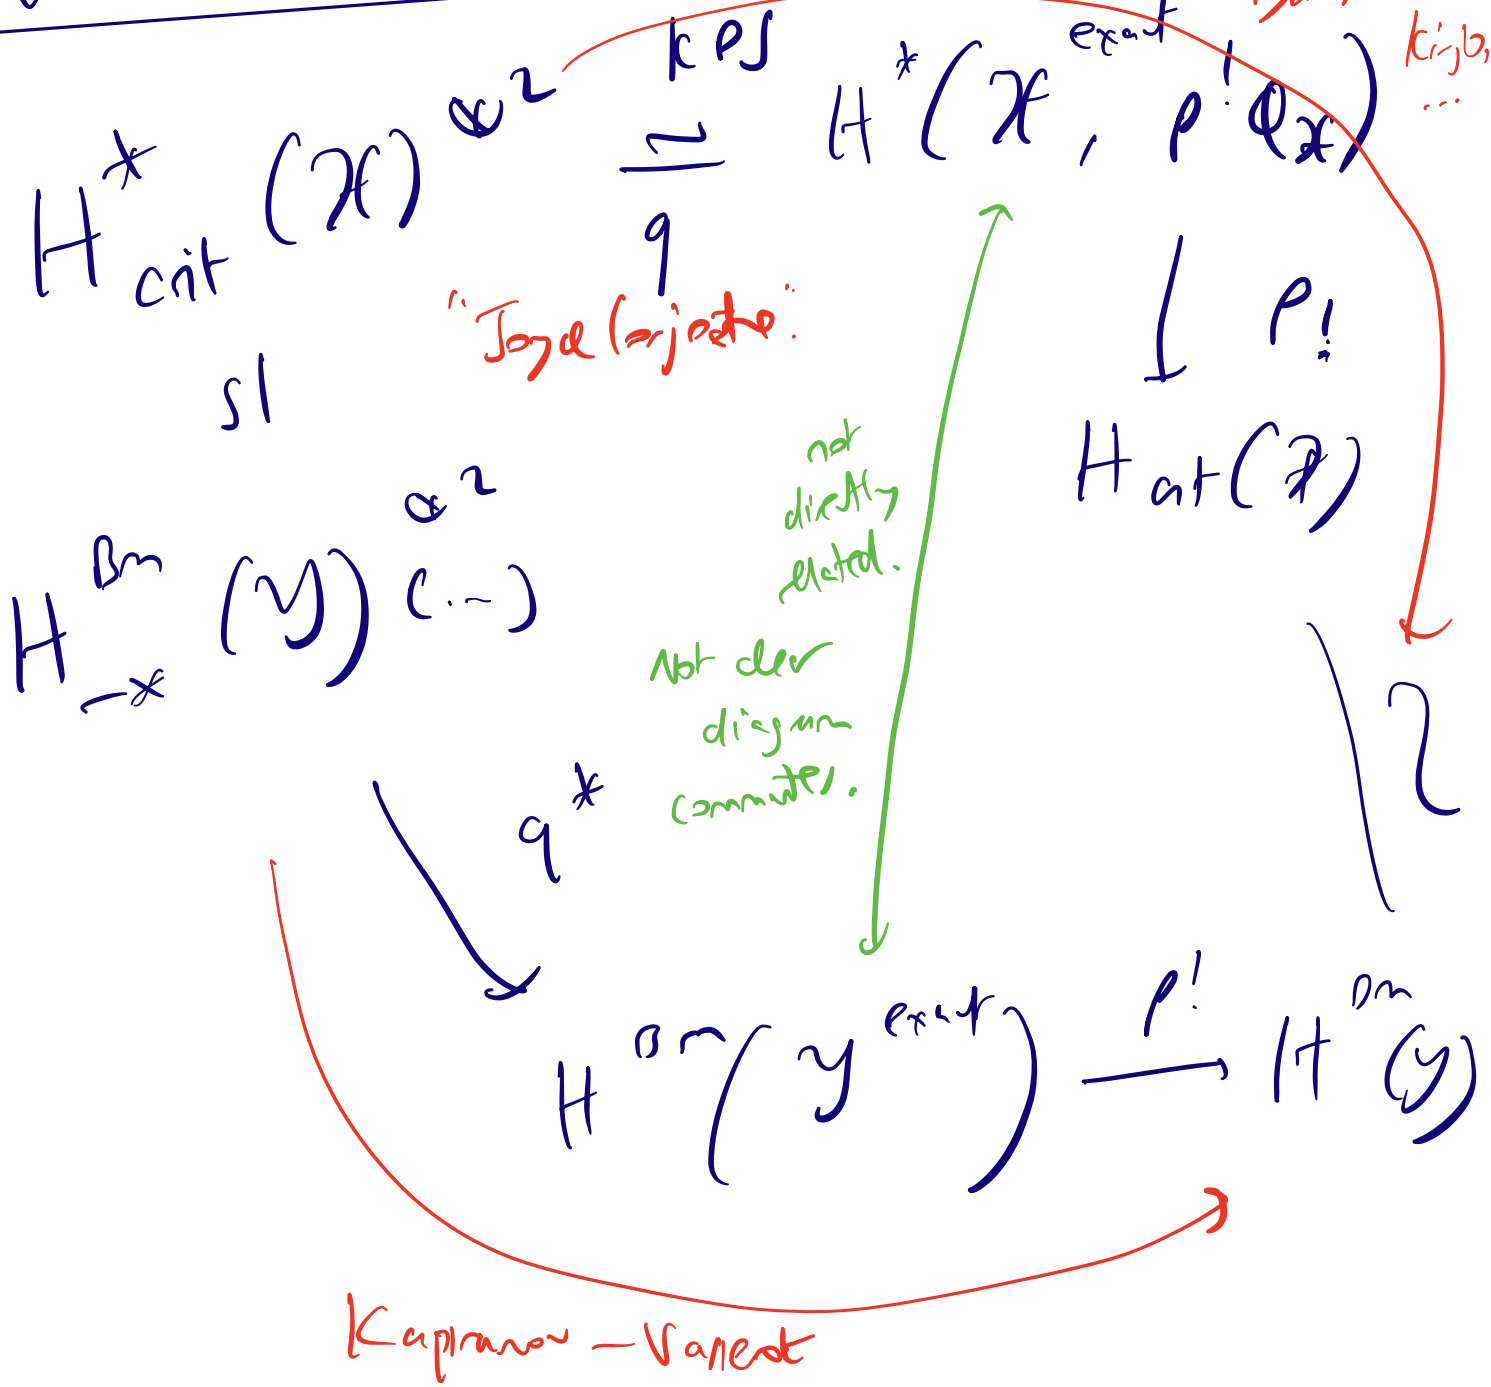 KPS
H*crit (𝒳)^⊗2 ≃ H*(𝒳^exact, p^! Q_𝒳)
q
"Joyce Conjecture"
↓ p_!
Hcrit(𝒳)
sl
H^BM_-* (𝒴)^⊗2 (...)
not
directly
related.
Not clear
diagram
commutes.
q*
H^BM(𝒴^exact) → H^BM(𝒴)
p^!
Kapranov – Vasserot